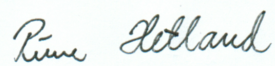 Rune Hetland